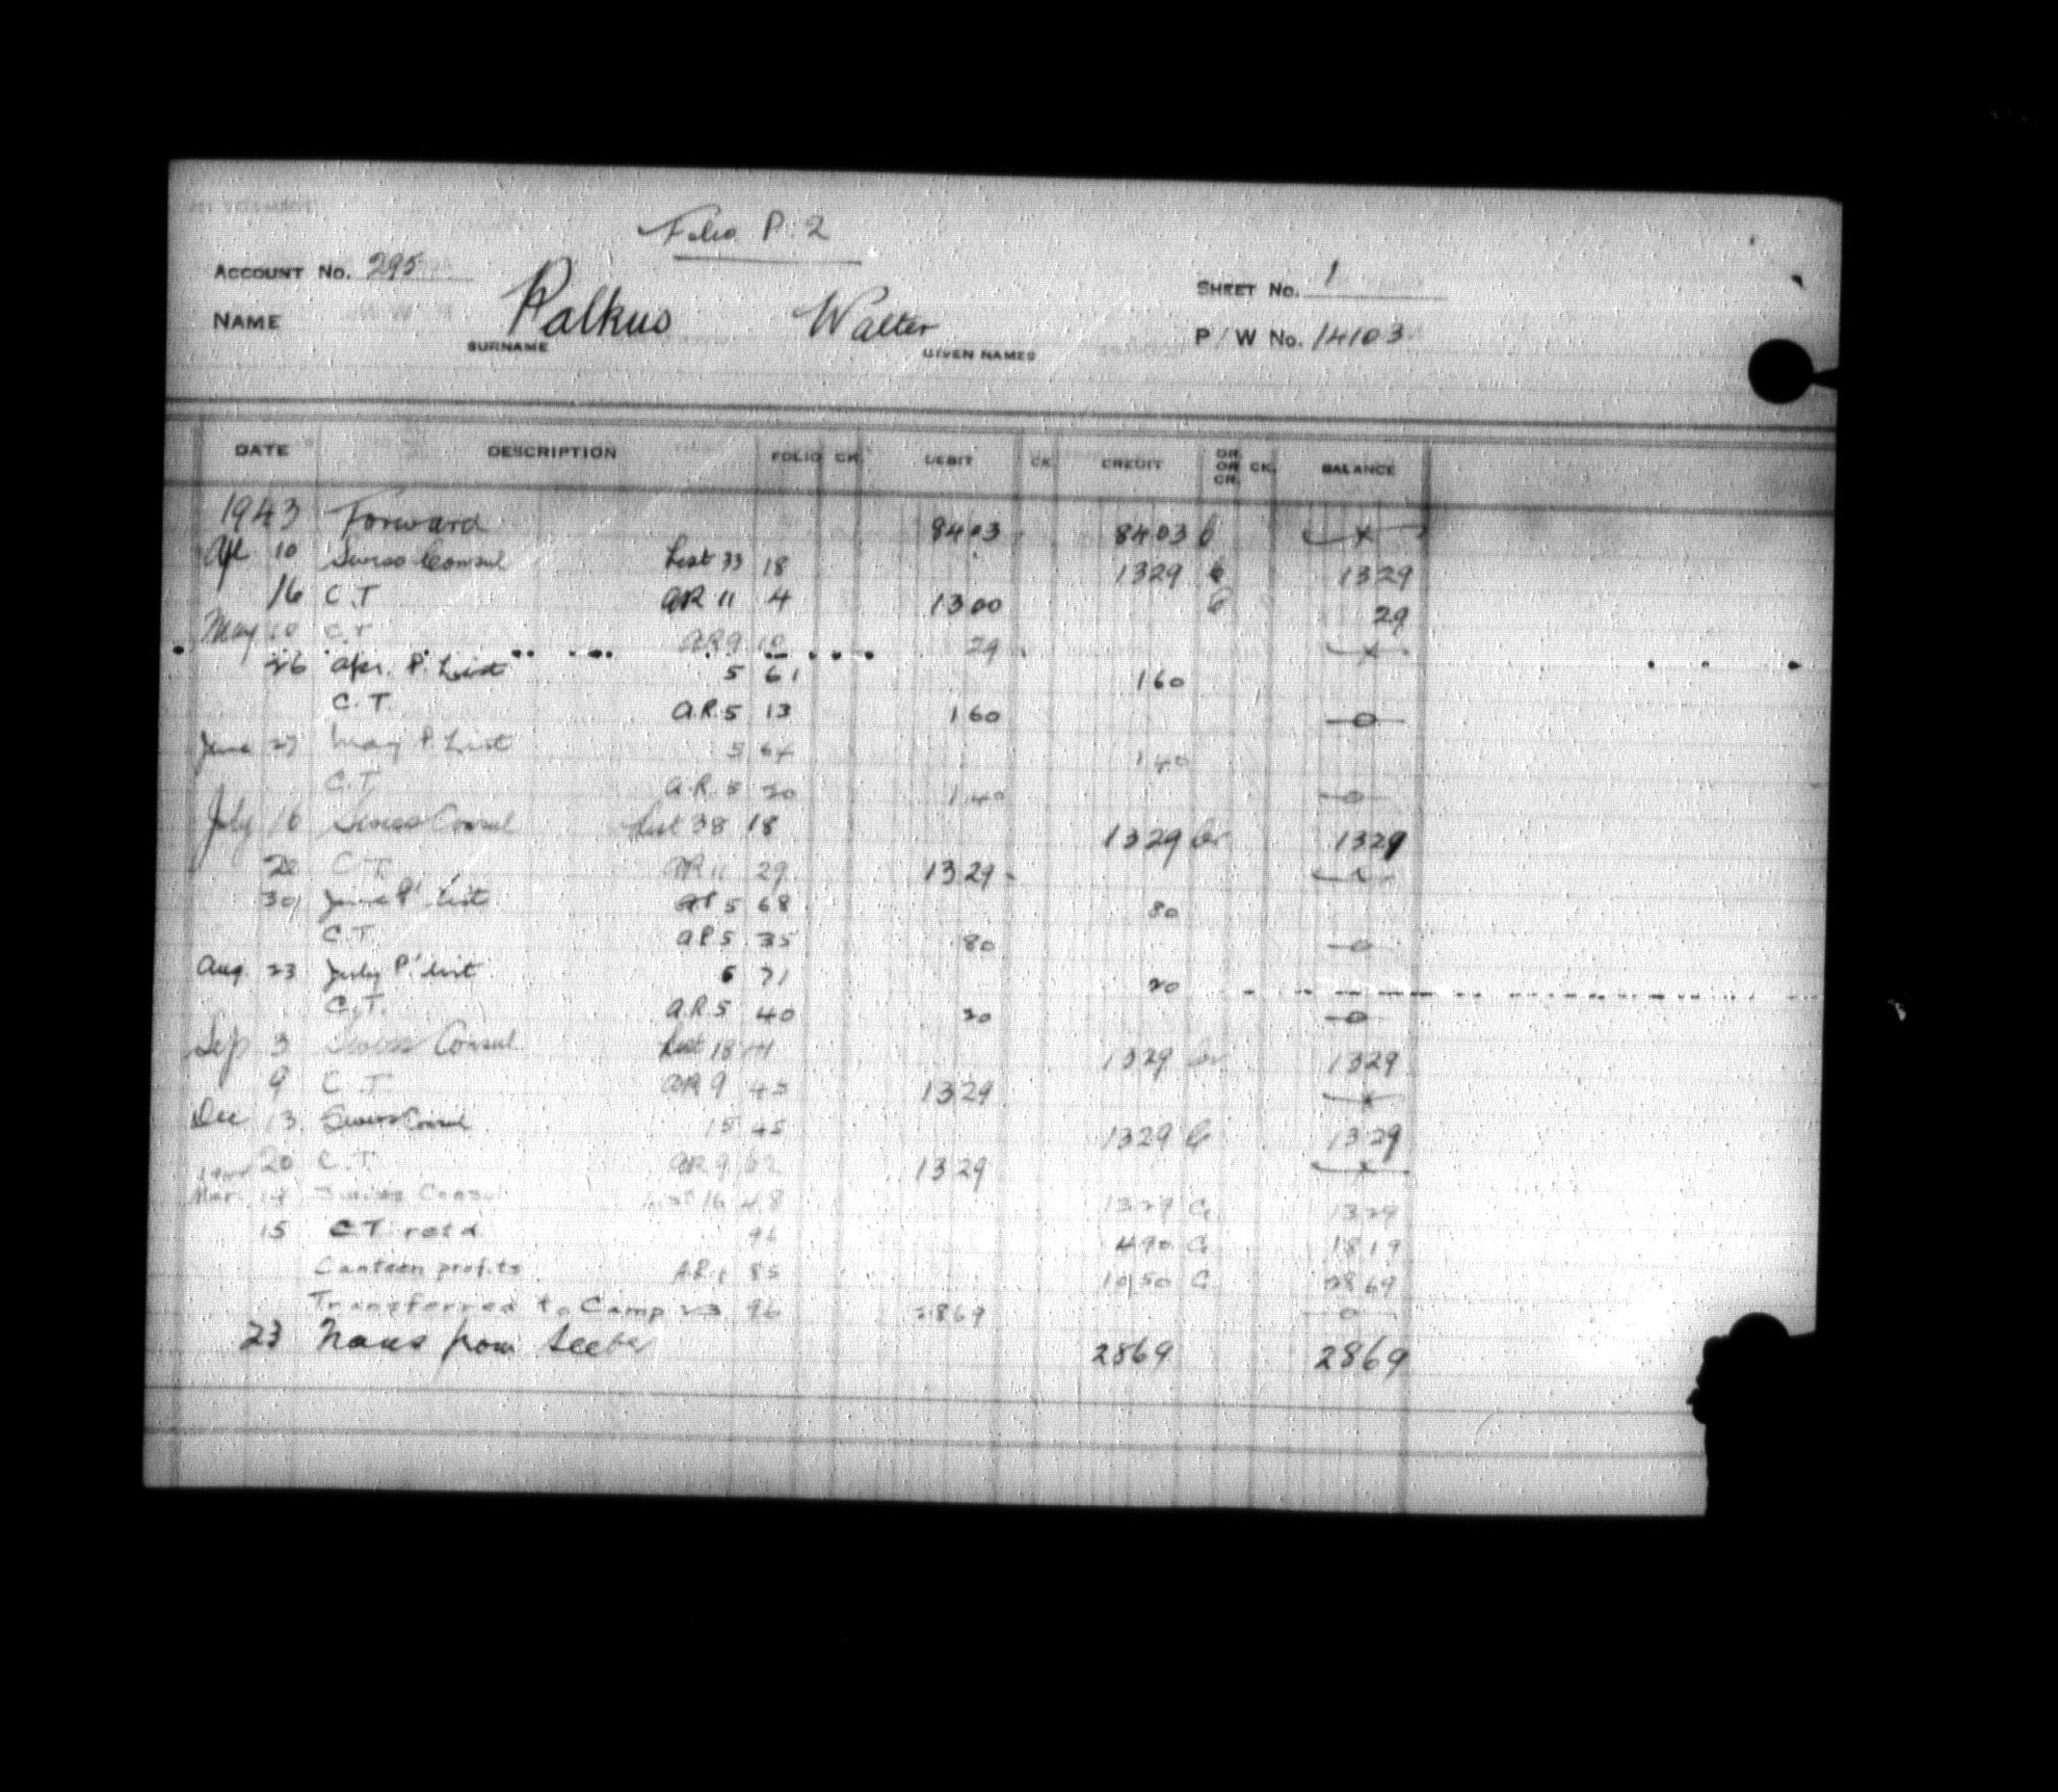 Folio P. 2
ACCOUNT No. 295
SHEET No. 1
NAME Palkus Walter
SURNAME GIVEN NAMES
P/W No. 14103
DATE DESCRIPTION FOLIO CK. DEBIT CK. CREDIT DR. OR CR. CK. BALANCE
1943 Forward 8403 8403
Apl 10 Swiss Consul List 33 18 1329 1329
16 C.T AR 11 4 1300 29
May 10 C.T. AR 9 10 29
26 Apr. P. List 5 61 160
C.T. A.R. 5 13 160 0
June 27 May P. List 5 64 140
C.T. A.R. 5 20 140 0
July 16 Swiss Consul List 38 18 1329 Cr 1329
20 C.T. AR 11 29 1329
30 June P. List AR 5 68 80
C.T. A.R. 5 35 80 0
Aug. 23 July P. List 5 71 20
C.T. A.R. 5 40 20 0
Sep 3 Swiss Consul List 18 41 1329 Cr 1329
9 C.T. AR 9 45 1329
Dec 13 Swiss Consul 15 45 1329 Cr 1329
20 C.T. AR 9 62 1329
Mar. 14 Swiss Consul List 16 48 1329 C. 1329
15 C.T. retd 96 490 C. 1819
Canteen profits A.R. 85 1050 C. 2869
Transferred to Camp 23 96 2869 0
23 Trans from 2869 2869